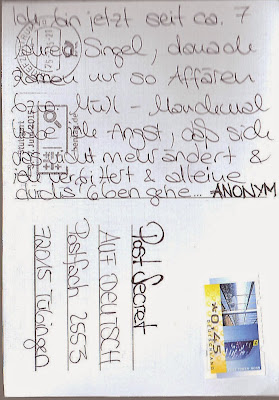 Ich bin jetzt seit ca. 7
Jahren Single, danach
kamen nur so Affären
bzw. Müll - Manchmal
habe Angst, daß sich
das nicht mehr ändert &
ich verbittert & alleine
durchs Leben gehe... ANONYM
Post Secret
AUF DEUTSCH
Postfach 2553
72015 Tübingen
0,45